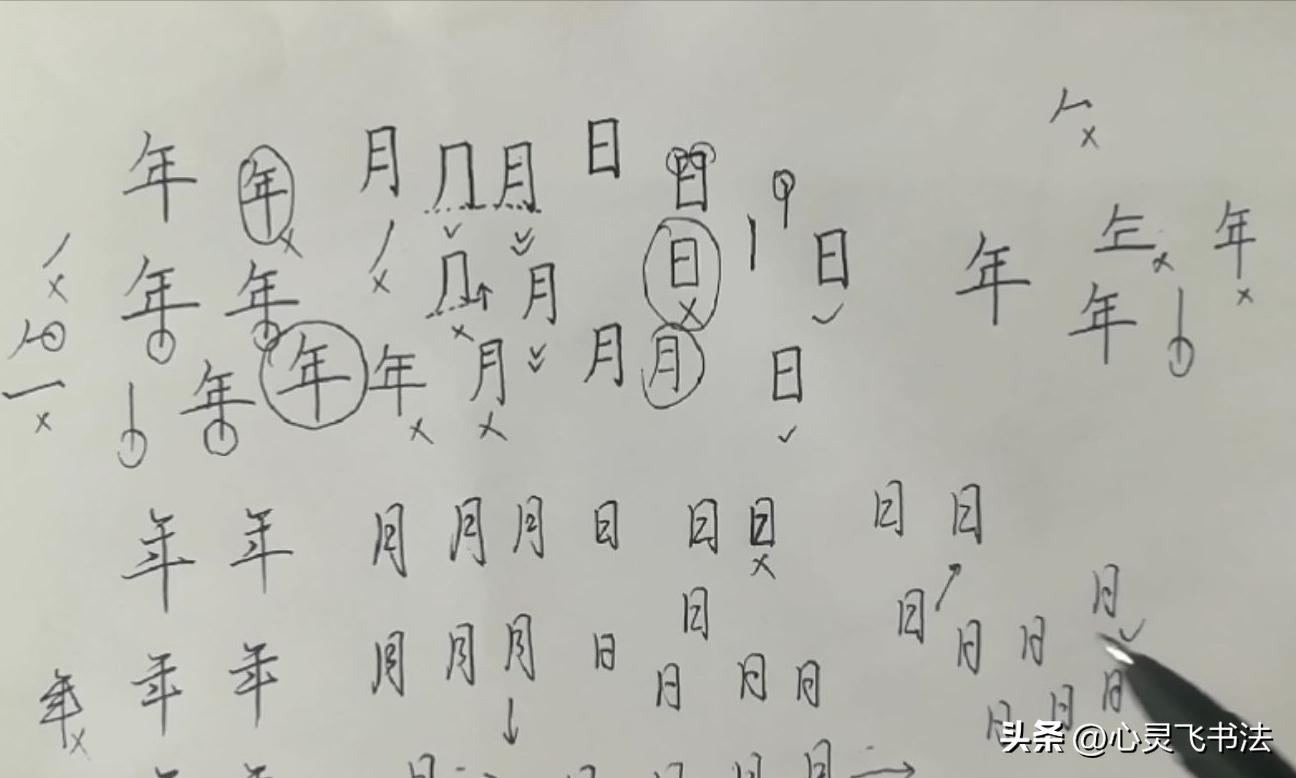 年 年 月 月 日 日
年 年 月 日 日 年 年
年 年 年 月 月 月 日 年
年 年 月 月 月 日 日 日 日 日
日 日 日
年 年 年 月 月 月 日 日 日 日 日 日 日
日 日 日
头条 @心灵飞书法